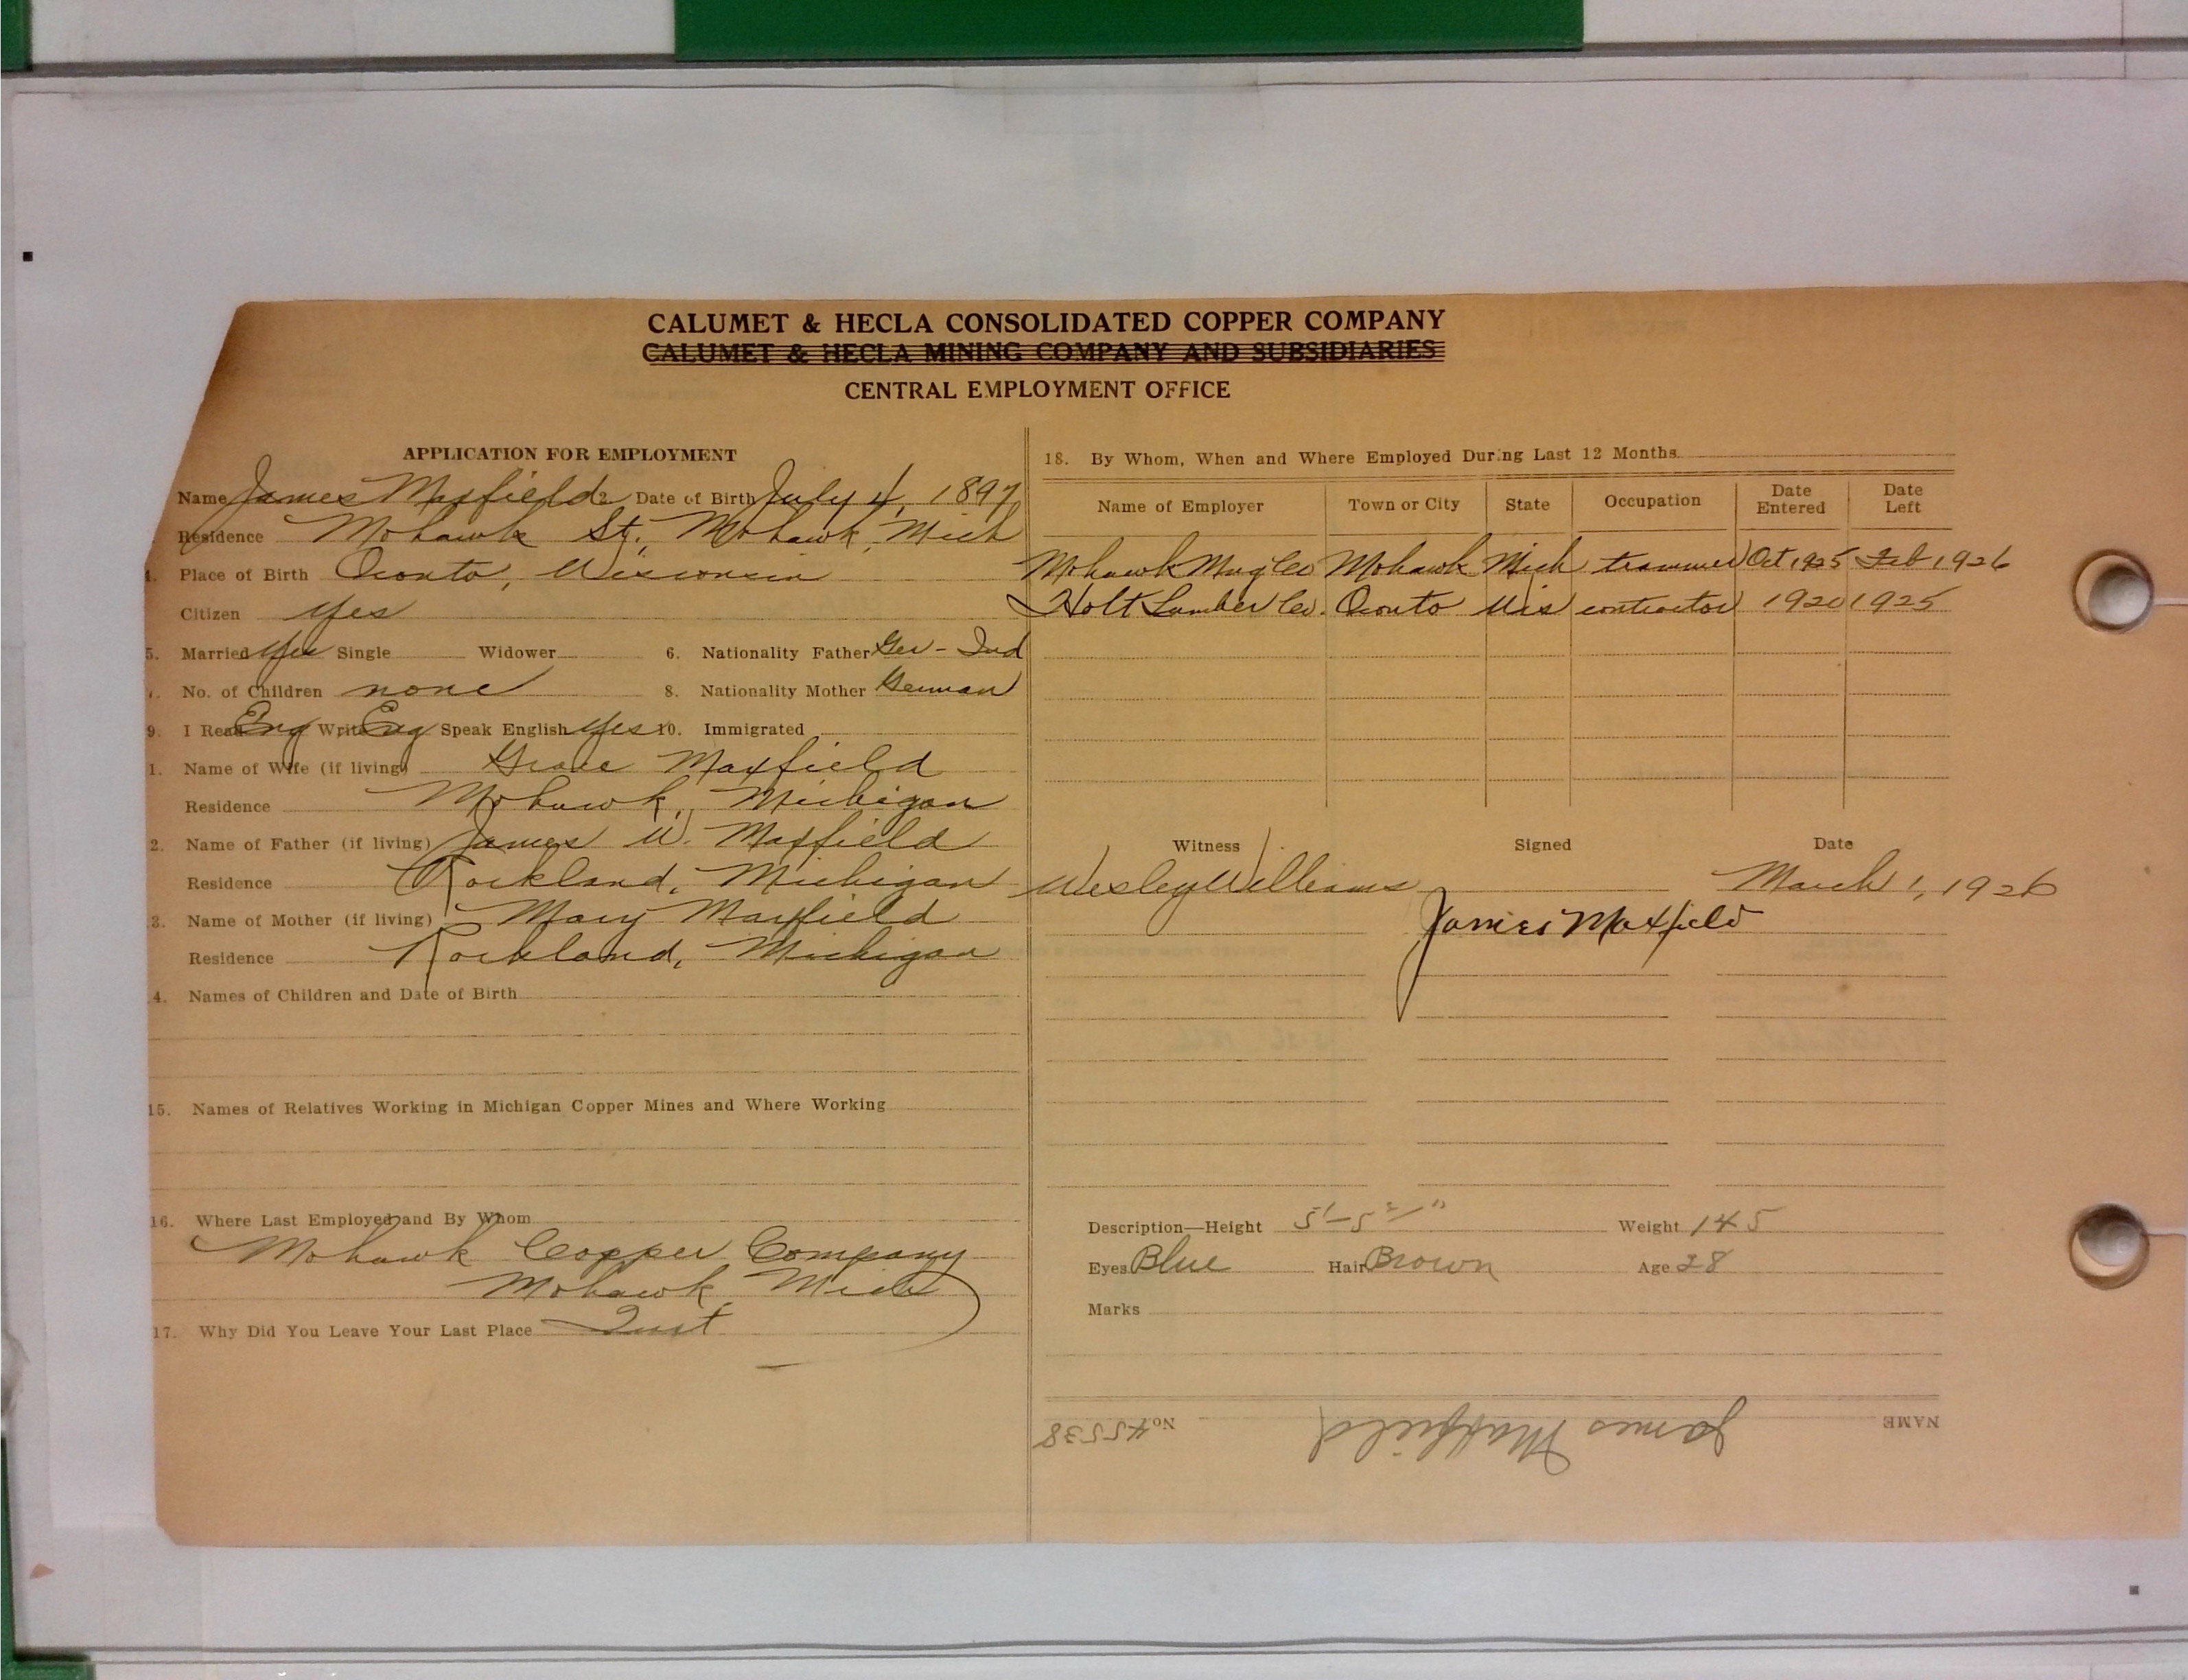 CALUMET & HECLA CONSOLIDATED COPPER COMPANY
CALUMET & HECLA MINING COMPANY AND SUBSIDIARIES
CENTRAL EMPLOYMENT OFFICE
APPLICATION FOR EMPLOYMENT
Name James Maxfield 2. Date of Birth July 4, 1897
Residence Mohawk St., Mohawk, Mich
4. Place of Birth Oconto, Wisconsin
Citizen Yes
5. Married Yes Single Widower 6. Nationality Father Ger - Ind
7. No. of Children none 8. Nationality Mother German
9. I Read Eng Write Eng Speak English Yes 10. Immigrated
1. Name of Wife (if living) Grace Maxfield
Residence Mohawk, Michigan
2. Name of Father (if living) James W. Maxfield
Residence Rockland, Michigan
3. Name of Mother (if living) Mary Maxfield
Residence Rockland, Michigan
4. Names of Children and Date of Birth
15. Names of Relatives Working in Michigan Copper Mines and Where Working
16. Where Last Employed and By Whom
Mohawk Copper Company
Mohawk, Mich
17. Why Did You Leave Your Last Place Quit
18. By Whom, When and Where Employed During Last 12 Months
Name of Employer Town or City State Occupation Date Entered Date Left
Mohawk Mng Co Mohawk Mich trammer Oct 1925 Feb 1926
Holt Lumber Co. Oconto Wis contractor 1920 1925
Witness Signed Date
Wesley Williams March 1, 1926
James Maxfield
Description—Height 5'-5 Weight 145
Eyes Blue Hair Brown Age 28
Marks
NAME James Maxfield No. 45538